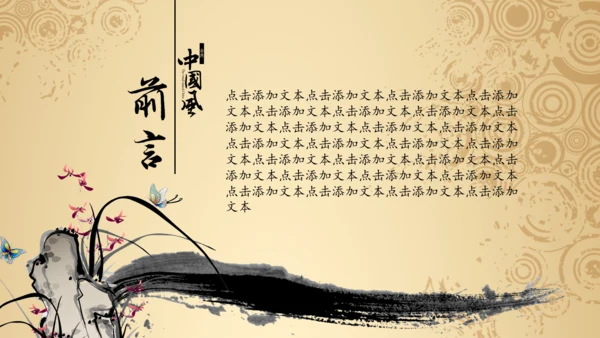 前言
中國風
点击添加文本,点击添加文本,点击添加文本,点击添加
文本,点击添加文本,点击添加文本,点击添加文本,点击
添加文本,点击添加文本,点击添加文本,点击添加文本,
点击添加文本,点击添加文本,点击添加文本,点击添加
文本,点击添加文本,点击添加文本,点击添加文本,点击
添加文本,点击添加文本,点击添加文本,点击添加文本,
点击添加文本,点击添加文本,点击添加文本,点击添加
文本